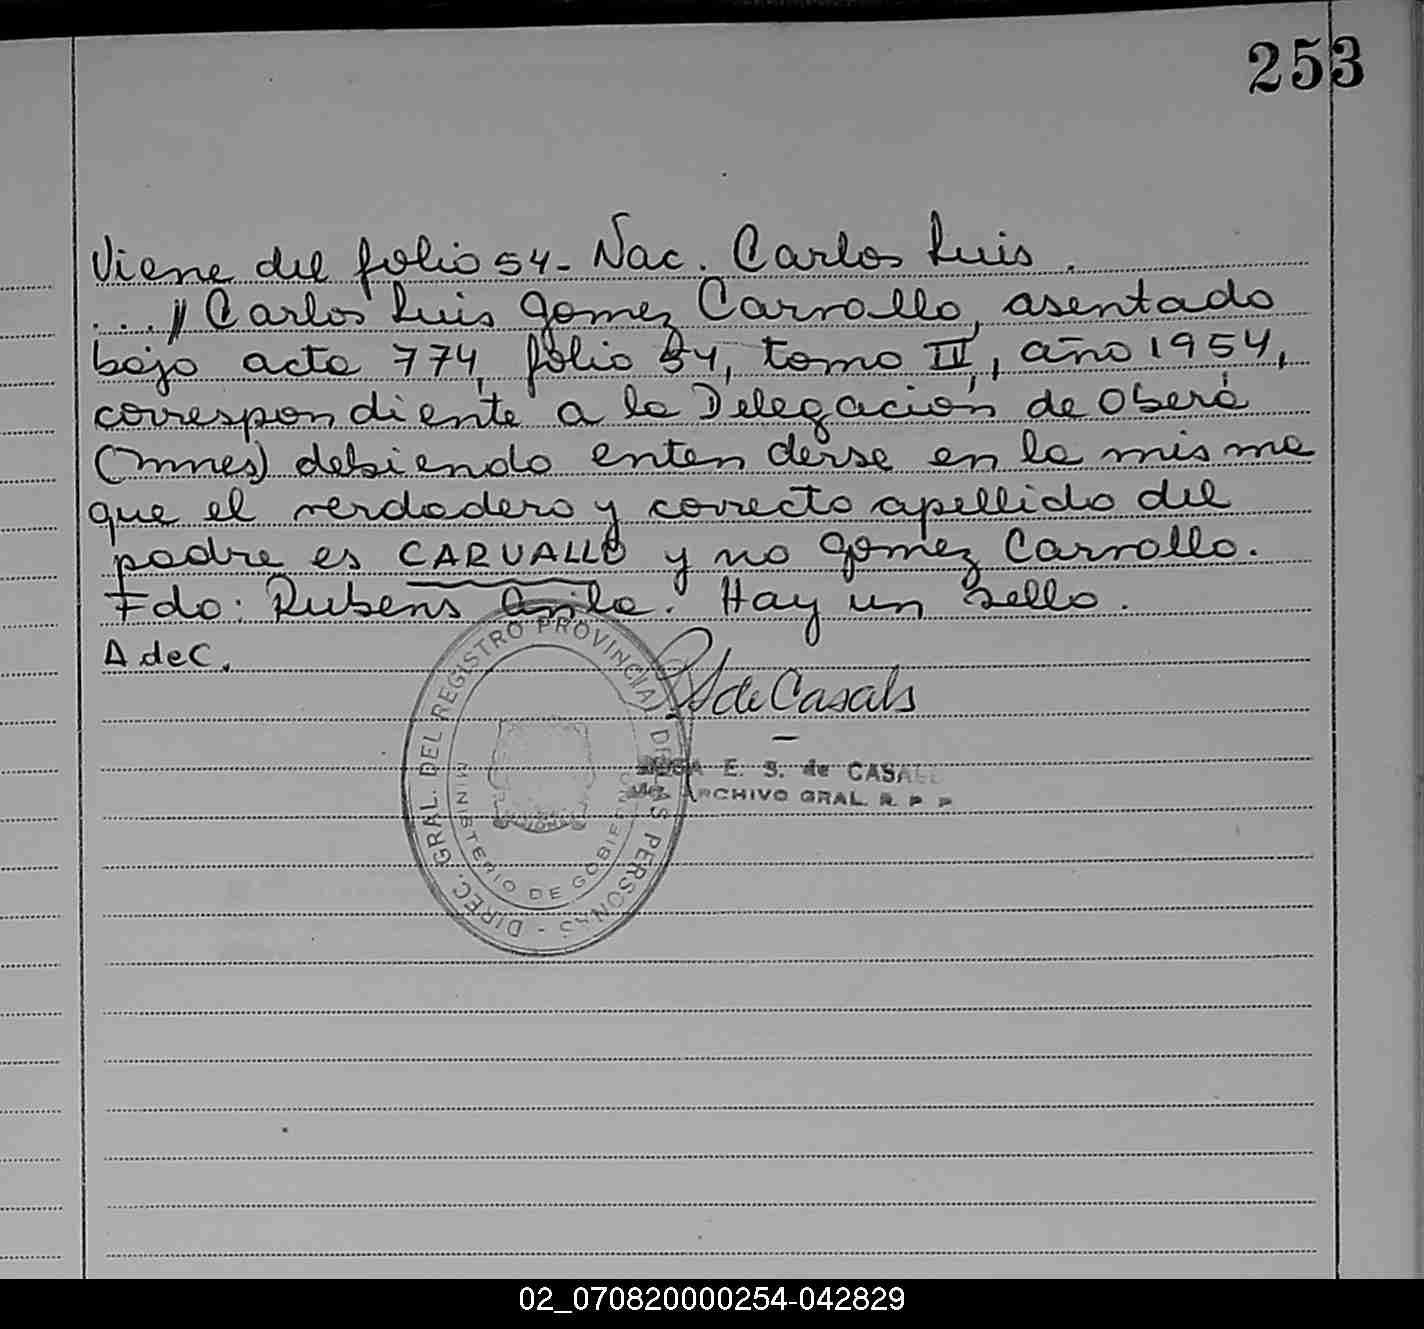 253
Viene del folio 54- Nac. Carlos Luis.
...// Carlos Luis Gomez Carvallo, asentado
bajo acta 774, folio 54, tomo III, año 1954,
correspondiente a la Delegación de Oberá
(Mnes) debiendo entenderse en la misma
que el verdadero y correcto apellido del
padre es CARVALLO y no Gomez Carvallo.
Fdo: Rubens Avila. Hay un sello.
A de C.
de Casals
E. S. de CASALS
ARCHIVO GRAL. R. P. P.
DIREC. GRAL. DEL REGISTRO PROVINCIAL DE LAS PERSONAS -
MINISTERIO DE GOBIERNO
MISIONES
02_070820000254-042829